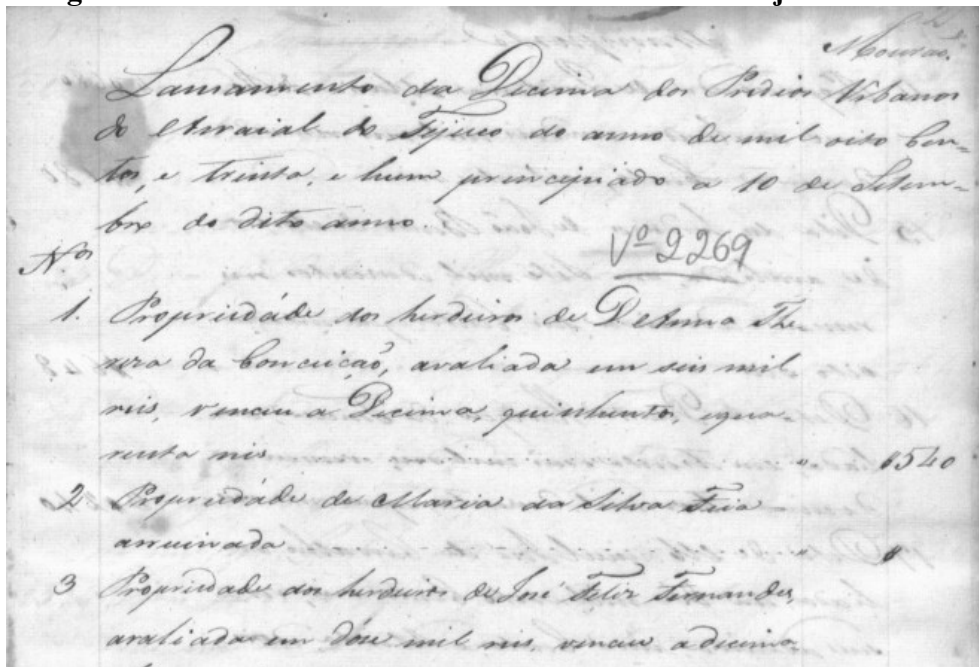 Mourão.
Lansamento da Decima dos Predios Urbanos
do Arraial do Tejuco do anno de mil oito cen=
tos, e trinta, e hum principiado a 10 de Setem=
bro do dito anno
Nos
Vº 2269
1. Propriedáde dos herdeiros de D. Anna The
reza da Conceiçaõ, avaliada em seis mil
reis, venceu a Decima, quinhentos, equa-
renta reis " $540
2 Propriedáde de Maria da Silva
arruinada " $
3 Propriedade dos herdeiros de José Feliz Fernandes,
avaliada em dóse mil reis, venceu a decima